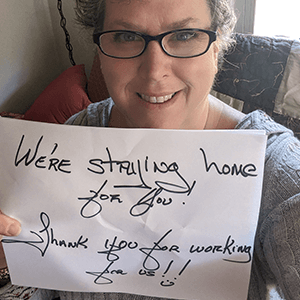 We're staying home
for you!
Thank you for working
for us!!